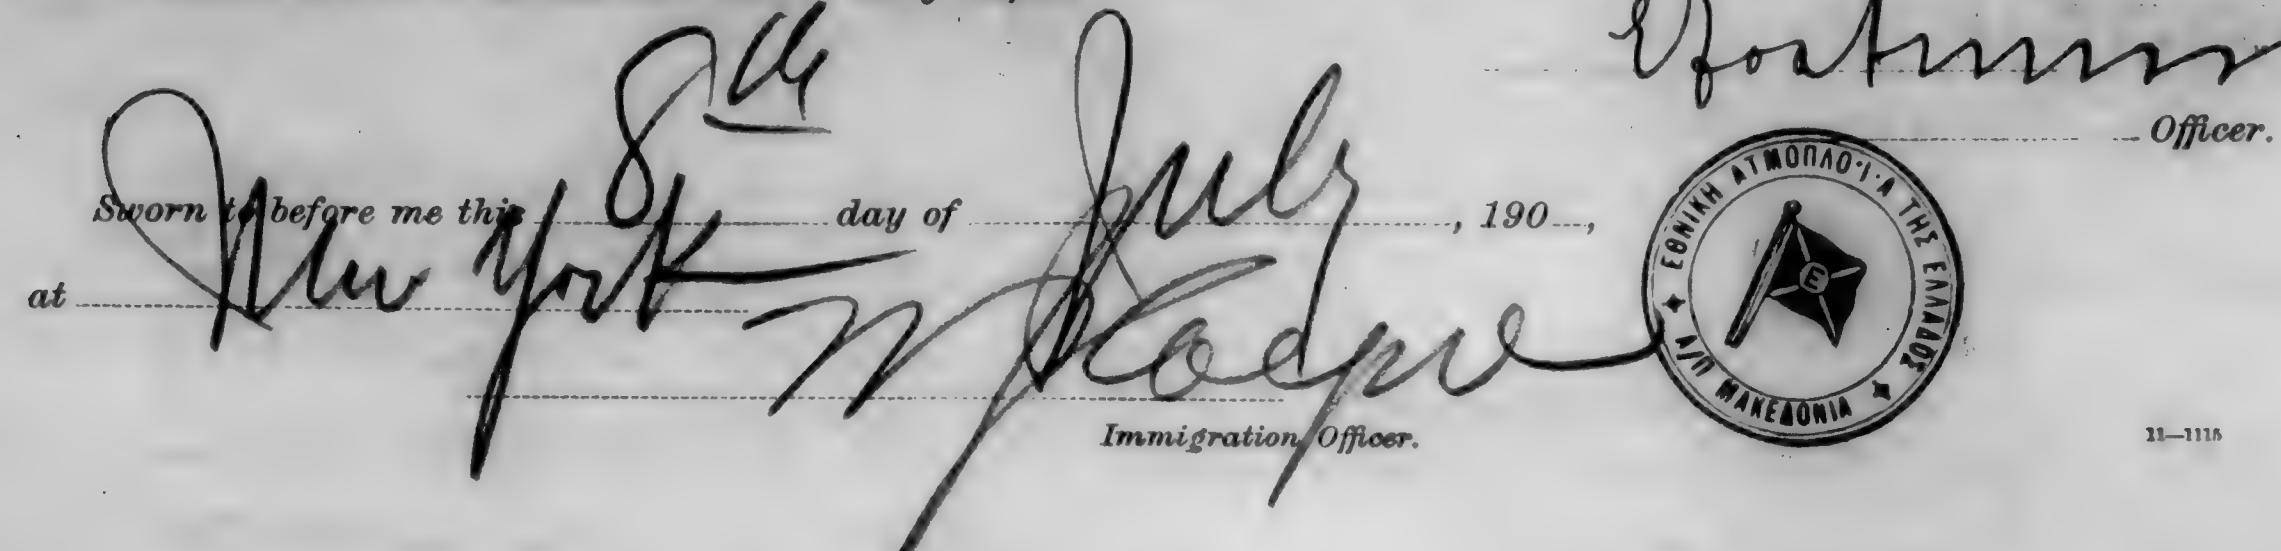 Officer.
Sworn to before me this 8th day of July, 190 ,
at New York
Immigration Officer.
ΕΘΝΙΚΗ ΑΤΜΟΠΛΟ·Ι·Α ΤΗΣ ΕΛΛΑΔΟΣ
Α/Π ΜΑΚΕΔΟΝΙΑ
E
11—1115